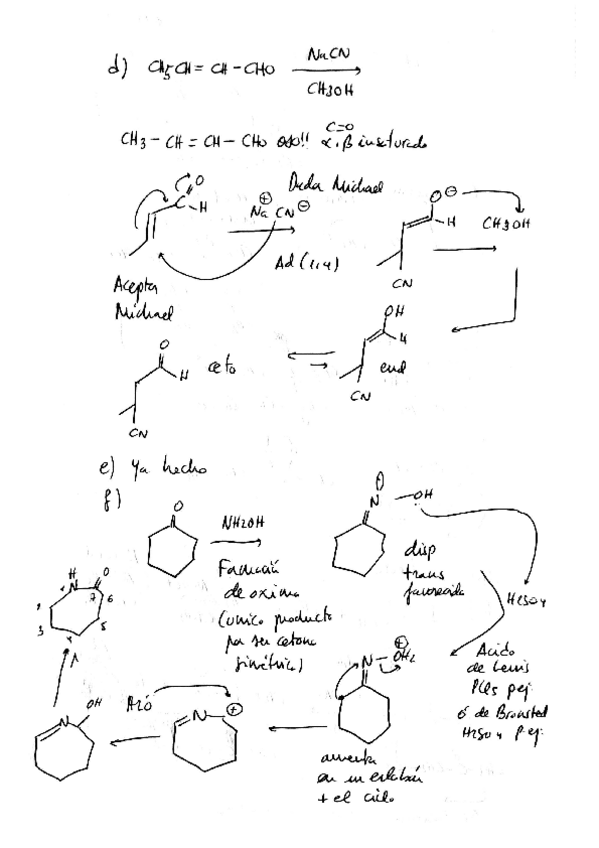 d) CH3CH = CH - CHO NaCN
CH3OH
CH3 - CH = CH - CHO ojo!! C=O
α,β insaturado
O
C - H
Dador Michael
Na⊕ CN⊖
Ad (1,4)
Aceptor
Michael
O⊖
H
CN
CH3OH
OH
H
enol
CN
O
H
ceto
CN
e) Ya hecho
f)
O
NH2OH
Formación
de oxima
(único producto
por ser cetona
simétrica)
N - OH
disp
trans
favorecida
H2SO4
Acido
de Lewis
PCl5 p ej.
ó de Bronsted
H2SO4 p. ej.
N - OH2 ⊕
aumenta
en un eslabón
+ el ciclo
N ⊕
H2O
N OH
H
N O
1 2 3 4 5 6 7